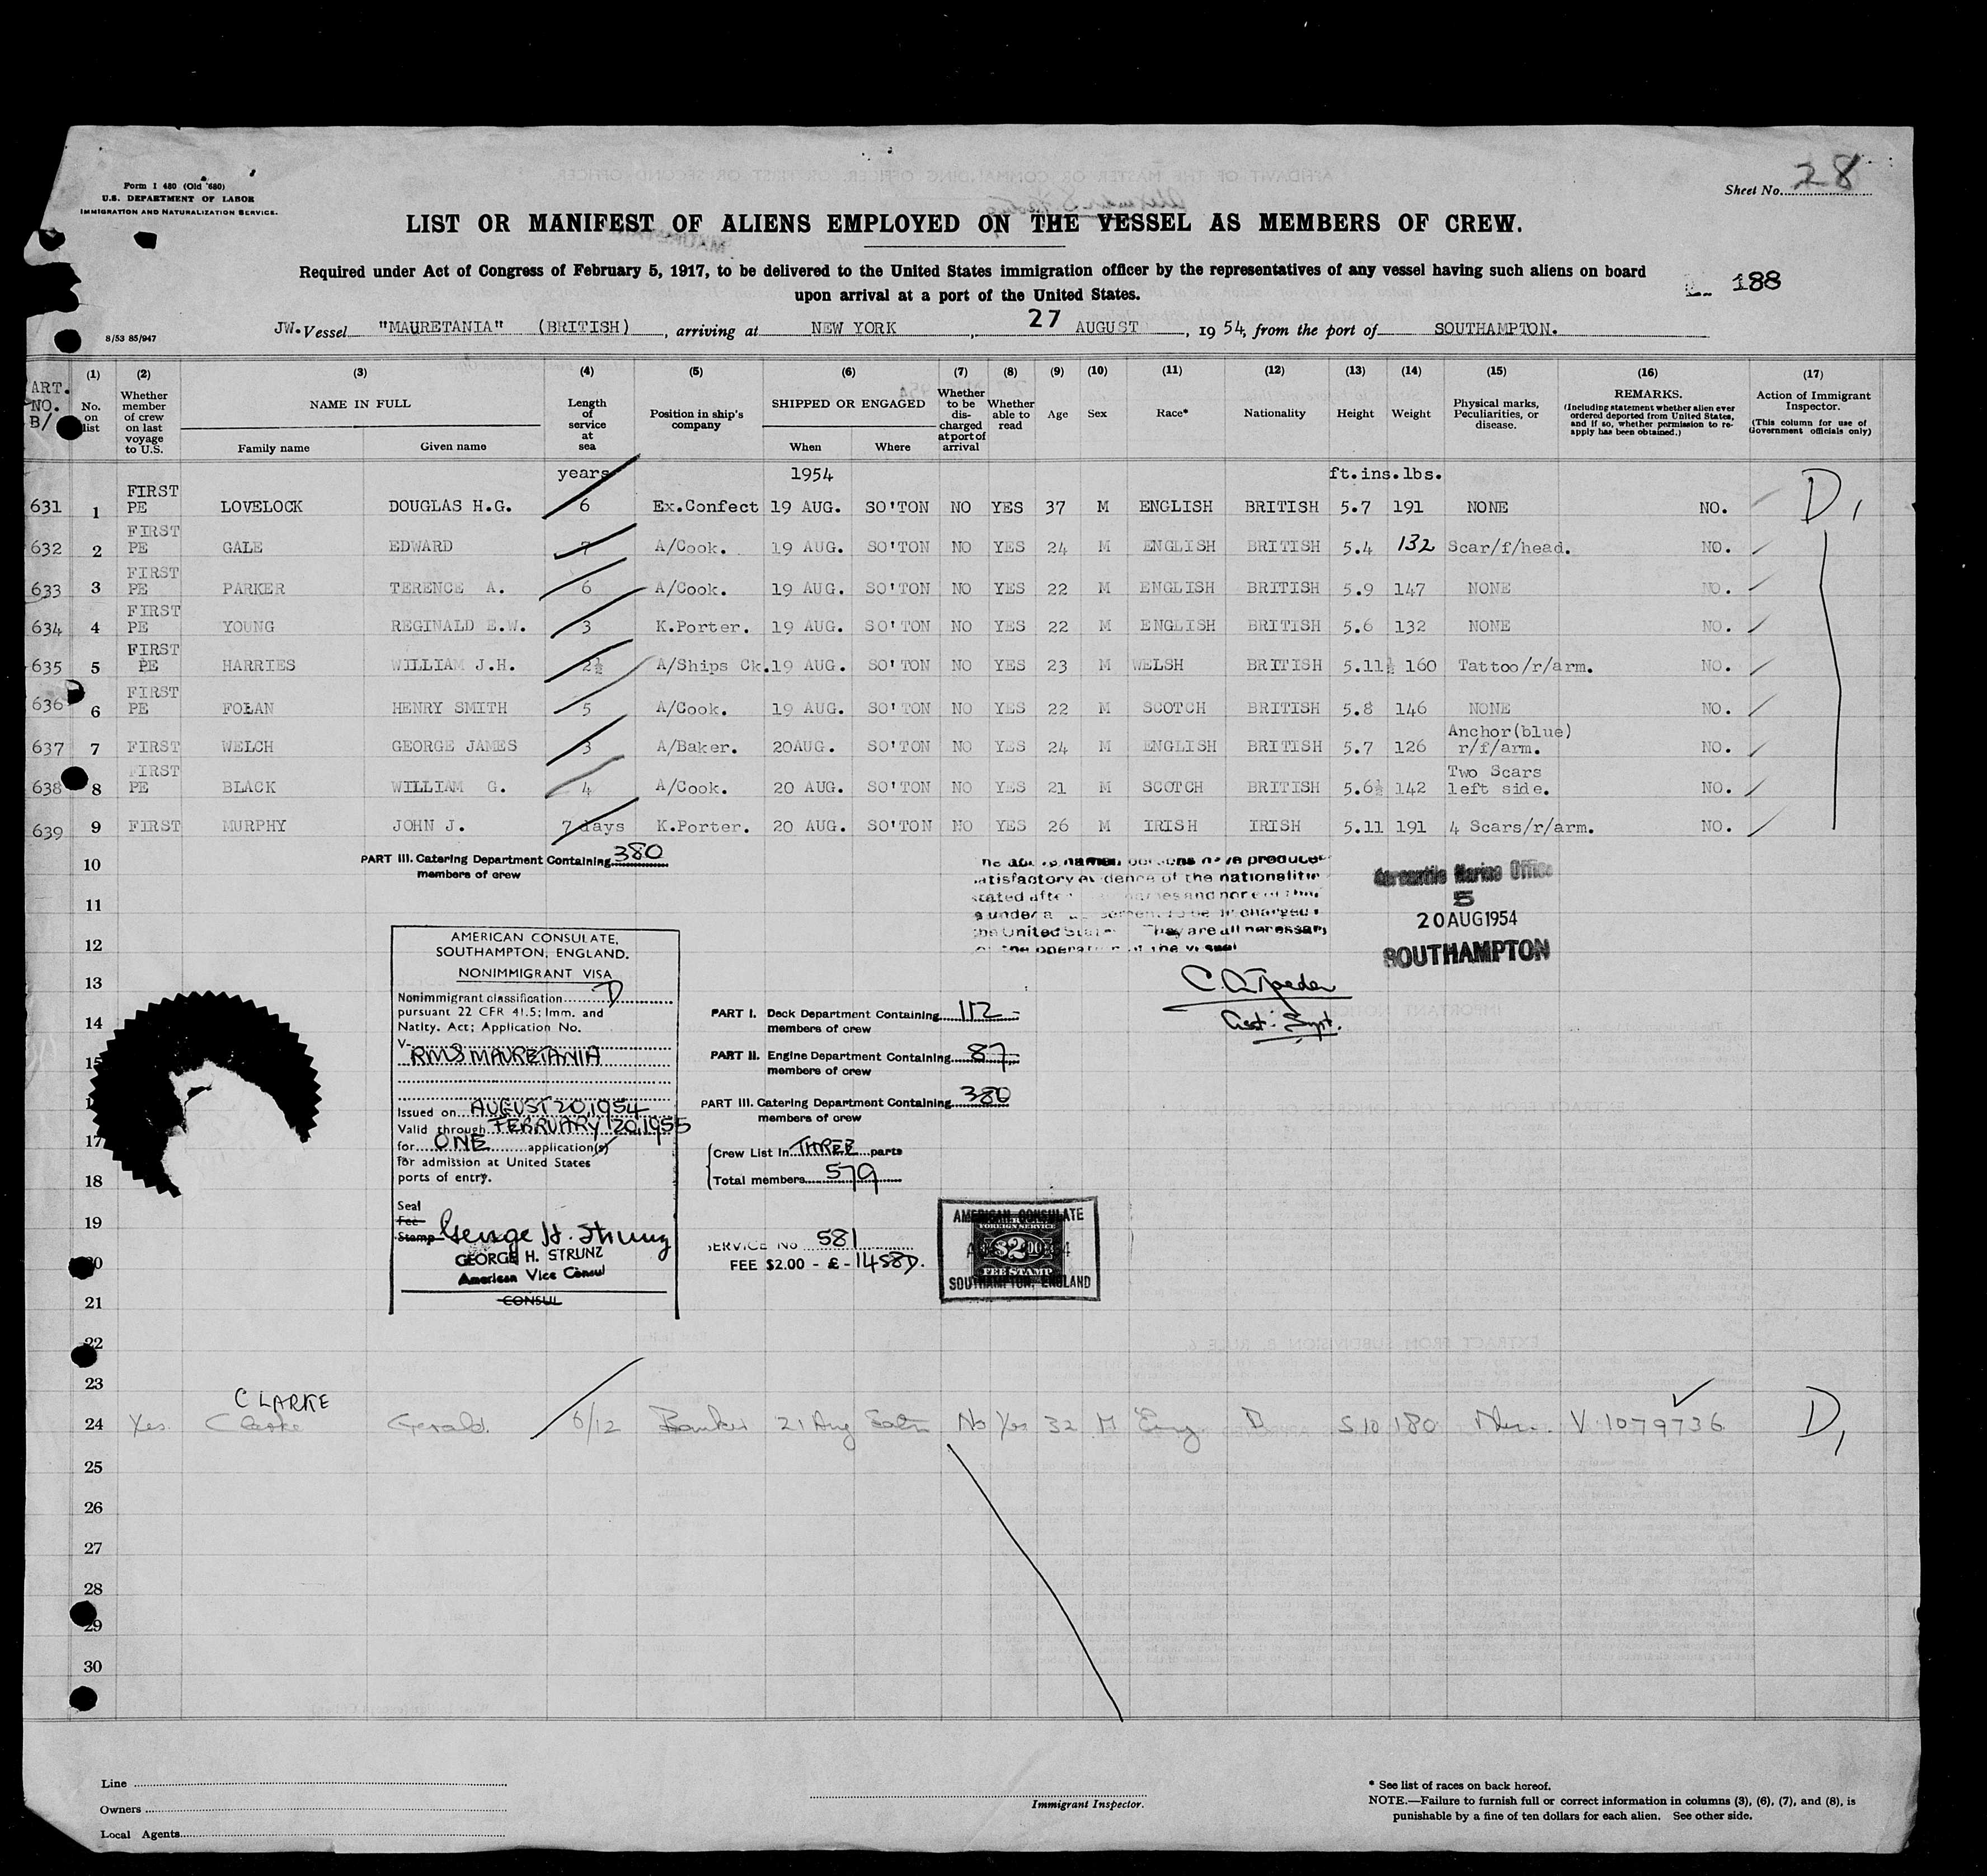 Form I 480 (Old 680)
U.S. DEPARTMENT OF LABOR
IMMIGRATION AND NATURALIZATION SERVICE.
Sheet No. 28
LIST OR MANIFEST OF ALIENS EMPLOYED ON THE VESSEL AS MEMBERS OF CREW.
Required under Act of Congress of February 5, 1917, to be delivered to the United States immigration officer by the representatives of any vessel having such aliens on board
upon arrival at a port of the United States.
188
8/53 85/947
JW. Vessel "MAURETANIA" (BRITISH), arriving at NEW YORK, 27 AUGUST, 1954, from the port of SOUTHAMPTON.
ART. NO. B/
(1) No. on list
(2) Whether member of crew on last voyage to U.S.
(3) NAME IN FULL Family name Given name
(4) Length of service at sea
(5) Position in ship's company
(6) SHIPPED OR ENGAGED When Where
(7) Whether to be discharged at port of arrival
(8) Whether able to read
(9) Age
(10) Sex
(11) Race*
(12) Nationality
(13) Height
(14) Weight
(15) Physical marks, Peculiarities, or disease.
(16) REMARKS. (Including statement whether alien ever ordered deported from United States, and if so, whether permission to re-apply has been obtained.)
(17) Action of Immigrant Inspector. (This column for use of Government officials only)
years 1954 ft.ins.lbs.
631 1 FIRST PE LOVELOCK DOUGLAS H.G. 6 Ex.Confect 19 AUG. SO'TON NO YES 37 M ENGLISH BRITISH 5.7 191 NONE NO. D,
632 2 FIRST PE GALE EDWARD 7 A/Cook. 19 AUG. SO'TON NO YES 24 M ENGLISH BRITISH 5.4 132 Scar/f/head. NO.
633 3 FIRST PE PARKER TERENCE A. 6 A/Cook. 19 AUG. SO'TON NO YES 22 M ENGLISH BRITISH 5.9 147 NONE NO.
634 4 FIRST PE YOUNG REGINALD E.W. 3 K.Porter. 19 AUG. SO'TON NO YES 22 M ENGLISH BRITISH 5.6 132 NONE NO.
635 5 FIRST PE HARRIES WILLIAM J.H. 2½ A/Ships Ck. 19 AUG. SO'TON NO YES 23 M WELSH BRITISH 5.11½ 160 Tattoo/r/arm. NO.
636 6 FIRST PE FOLAN HENRY SMITH 5 A/Cook. 19 AUG. SO'TON NO YES 22 M SCOTCH BRITISH 5.8 146 NONE NO.
637 7 FIRST WELCH GEORGE JAMES 3 A/Baker. 20AUG. SO'TON NO YES 24 M ENGLISH BRITISH 5.7 126 Anchor(blue) r/f/arm. NO.
638 8 FIRST PE BLACK WILLIAM G. 4 A/Cook. 20 AUG. SO'TON NO YES 21 M SCOTCH BRITISH 5.6½ 142 Two Scars left side. NO.
639 9 FIRST MURPHY JOHN J. 7 days K.Porter. 20 AUG. SO'TON NO YES 26 M IRISH IRISH 5.11 191 4 Scars/r/arm. NO.
10
PART III. Catering Department Containing 380
members of crew
named persons have produced
satisfactory evidence of the nationalities
stated after names and none of them
the United States They are all necessary
the operation of the vessel
Asst. Supt.
Mercantile Marine Office
5
20 AUG 1954
SOUTHAMPTON
11
12
13
14
15
17
18
19
AMERICAN CONSULATE,
SOUTHAMPTON, ENGLAND.
NONIMMIGRANT VISA
Nonimmigrant classification D
pursuant 22 CFR 41.5; Imm. and
Natlty. Act; Application No.
V-
RMS MAURETANIA
Issued on AUGUST 20, 1954
Valid through FEBRUARY 20, 1955
for ONE application(s)
for admission at United States
ports of entry.
Seal
Fee
Stamp George H. Strunz
GEORGE H. STRUNZ
American Vice Consul
CONSUL
PART I. Deck Department Containing 112
members of crew
PART II. Engine Department Containing 87
members of crew
PART III. Catering Department Containing 380
members of crew
Crew List In THREE parts
Total members 579
SERVICE No 581
FEE $2.00 - £ - 14S8D.
AMERICAN CONSULATE
FOREIGN SERVICE
$2.00
FEE STAMP
SOUTHAMPTON, ENGLAND
20
21
22
23
CLARKE
24 Yes. Clarke Gerald. 6/12 21 Aug No Yes 32 M Eng B 5.10 180 V.1079736 D,
25
26
27
28
29
30
Line
Owners
Local Agents
Immigrant Inspector.
* See list of races on back hereof.
NOTE.—Failure to furnish full or correct information in columns (3), (6), (7), and (8), is
punishable by a fine of ten dollars for each alien. See other side.